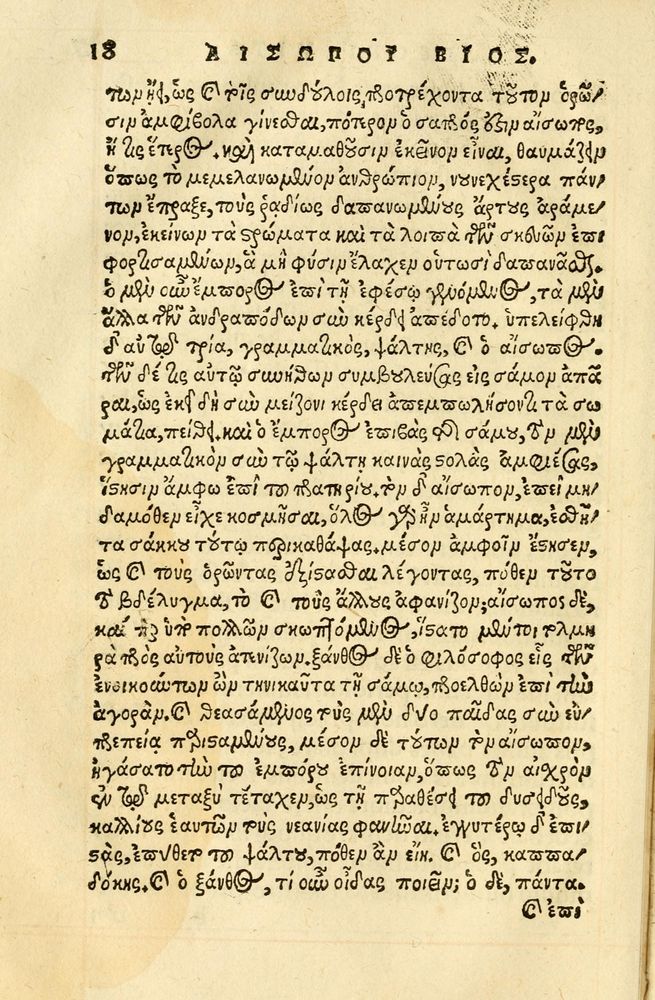 18 ΑΙΣΩΠΟΥ ΒΙΟΣ.
των ἤει, ὡς καὶ τοῖς συνδούλοις, προτρέχοντα τοῦτον ὁρῶ-
σιν ἀμφίβολα γίνεσθαι, πότερον ὁ σαπρός ἐστιν αἴσωπος,
ἤ τις ἕτερος. καὶ καταμαθοῦσιν ἐκεῖνον εἶναι, θαυμάζειν
ὅπως τὸ μεμελανωμένον ἀνθρώπιον, νουνεχέστερα πάν-
των ἔπραξε, τοὺς ῥαδίως δαπανωμένους ἄρτους ἀράμε-
νον, ἐκείνων τὰ στρώματα καὶ τὰ λοιπὰ τῶν σκευῶν ἐπι
φορτισαμένων, ἃ μὴ φύσιν ἔλαχεν οὑτωσὶ δαπανᾶσθαι.
ὁ μὲν οὖν ἔμπορος ἐπὶ τῇ ἐφέσῳ γενόμενος, τὰ μὲν
ἄλλα τῶν ἀνδραπόδων σὺν κέρδει ἀπέδοτο. ὑπελείφθη
δ' αὐτῷ τρία, γραμματικὸς, ψάλτης, καὶ ὁ αἴσωπος.
τῶν δέ τις αὐτῷ συνήθων συμβουλεύσας εἰς σάμον ἀπᾶ
ραι, ὡς ἐκεῖ δὴ σὺν μείζονι κέρδει ἀπεμπωλήσοντι τὰ σω
μάτια, πείθει. καὶ ὁ ἔμπορος ἐπιβὰς τῆς σάμου, τὸν μὲν
γραμματικὸν σὺν τῷ ψάλτῃ καινὰς στολὰς ἀμφιέσας,
ἵστησιν ἄμφω ἐπὶ τοῦ πρατηρίου. τὸν δ' αἴσωπον, ἐπεὶ μη-
δαμόθεν εἶχε κοσμῆσαι, ὅλος γὰρ ἦν ἁμάρτημα, ἐσθῆ-
τα σάκκου τούτῳ περικαθάψας. μέσον ἀμφοῖν ἔστησεν,
ὡς καὶ τοὺς ὁρῶντας ἐξίστασθαι λέγοντας, πόθεν τοῦτο
τὸ βδέλυγμα, τὸ καὶ τοὺς ἄλλους ἀφανίζον; αἴσωπος δὲ,
καί περ ὑπὸ πολλῶν σκωπτόμενος, ἵστατο μέντοι τολμη
ρὰ πρὸς αὐτοὺς ἀτενίζων. ξάνθος δὲ ὁ φιλόσοφος εἷς τῶν
ἐνοικούντων ὢν τηνικαῦτα τῇ σάμῳ, προελθὼν ἐπὶ τὴν
ἀγορὰν. καὶ θεασάμενος τοὺς μὲν δύο παῖδας σὺν εὐ-
πρεπείᾳ περισταμένους, μέσον δὲ τούτων τὸν αἴσωπον,
ἠγάσατο τὴν τοῦ ἐμπόρου ἐπίνοιαν, ὅπως τὸν αἰσχρὸν
ἐν τῷ μεταξὺ τέταχεν, ὡς τῇ παραθέσει τοῦ δυσειδοῦς,
καλλίους ἑαυτῶν τοὺς νεανίας φανῆναι. ἐγγυτέρω δ' ἐπι-
στὰς, ἐπύθετο τοῦ ψάλτου, πόθεν ἂν εἴη. καὶ ὃς, καππα-
δόκης. καὶ ὁ ξάνθος, τί οὖν οἶδας ποιεῖν; ὁ δὲ, πάντα.
καὶ ἐπὶ